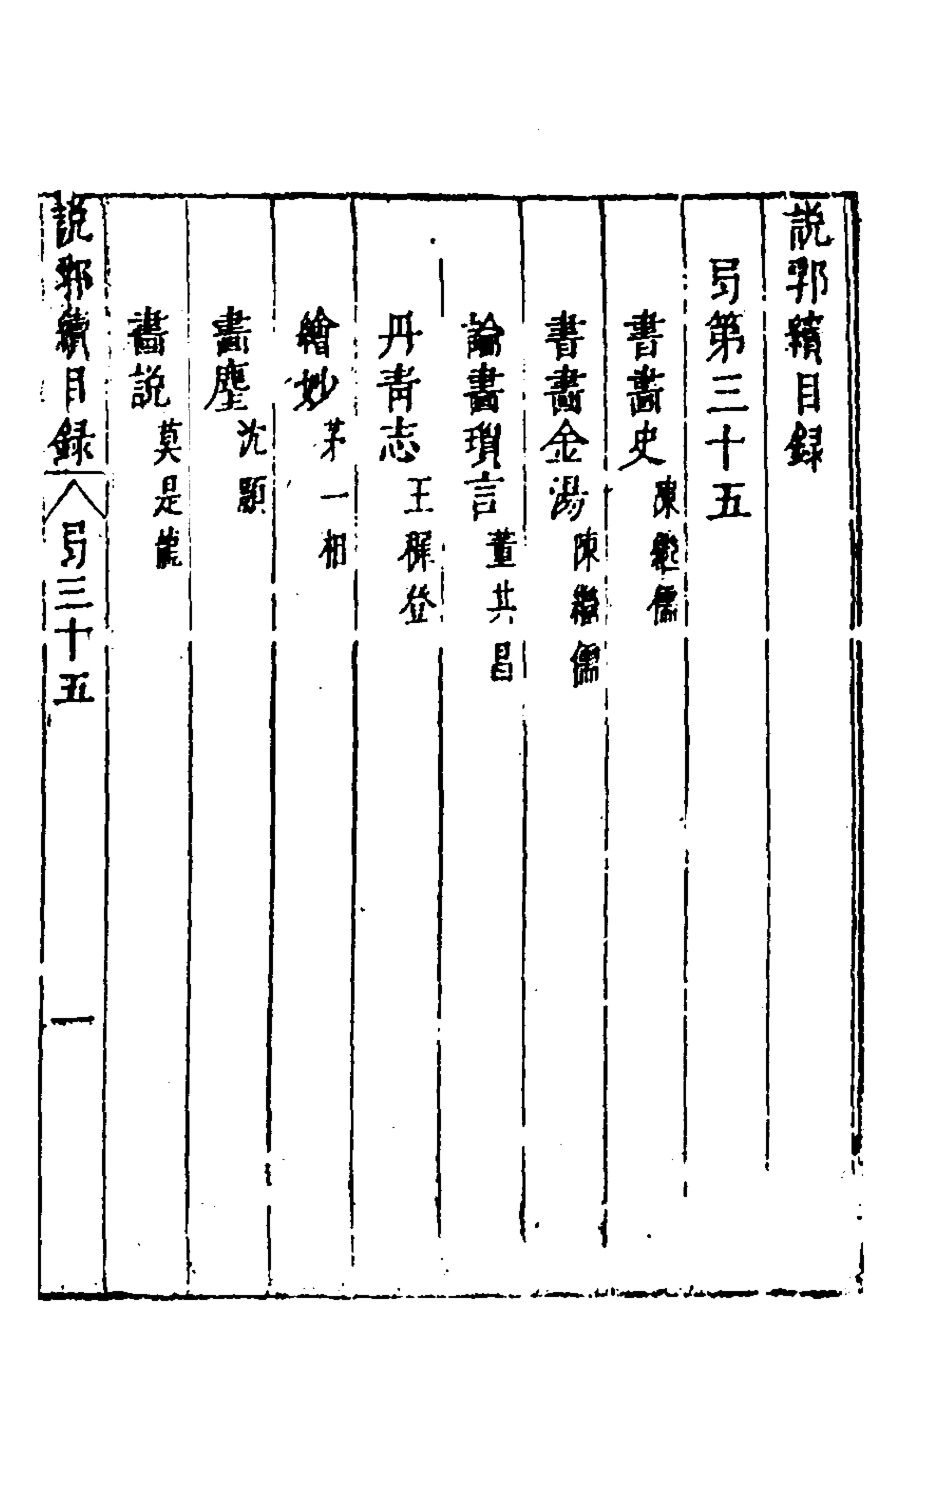 説郛續目録
弓第三十五
書畫史陳繼儒
書畫金湯陳繼儒
論畫瑣言董其昌
丹青志王穉登
繪妙茅一相
畫塵沈顥
畫説莫是龍
説郛續目録
弓三十五
一